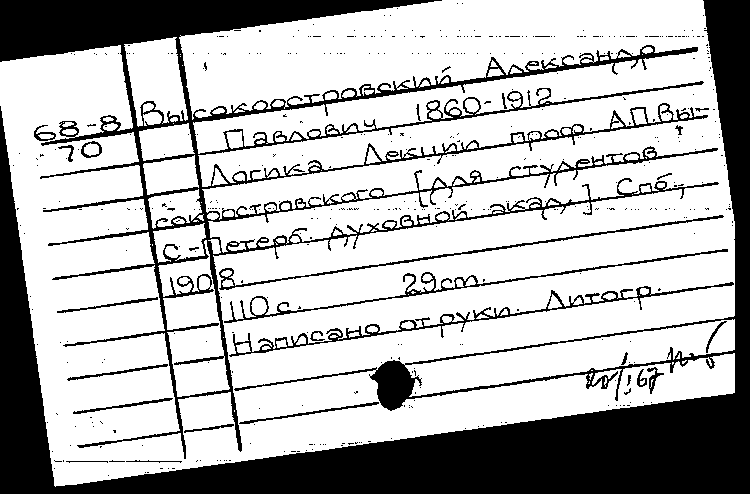 68-8 Высокоостровский, Александр
70 Павлович, 1860-1912.
Логика. Лекции проф. А.П.Вы-
сокоостровского [для студентов
С.-Петерб. духовной акад.] Спб.,
1908.
110 с. 29 cm.
Написано от руки. Литогр.